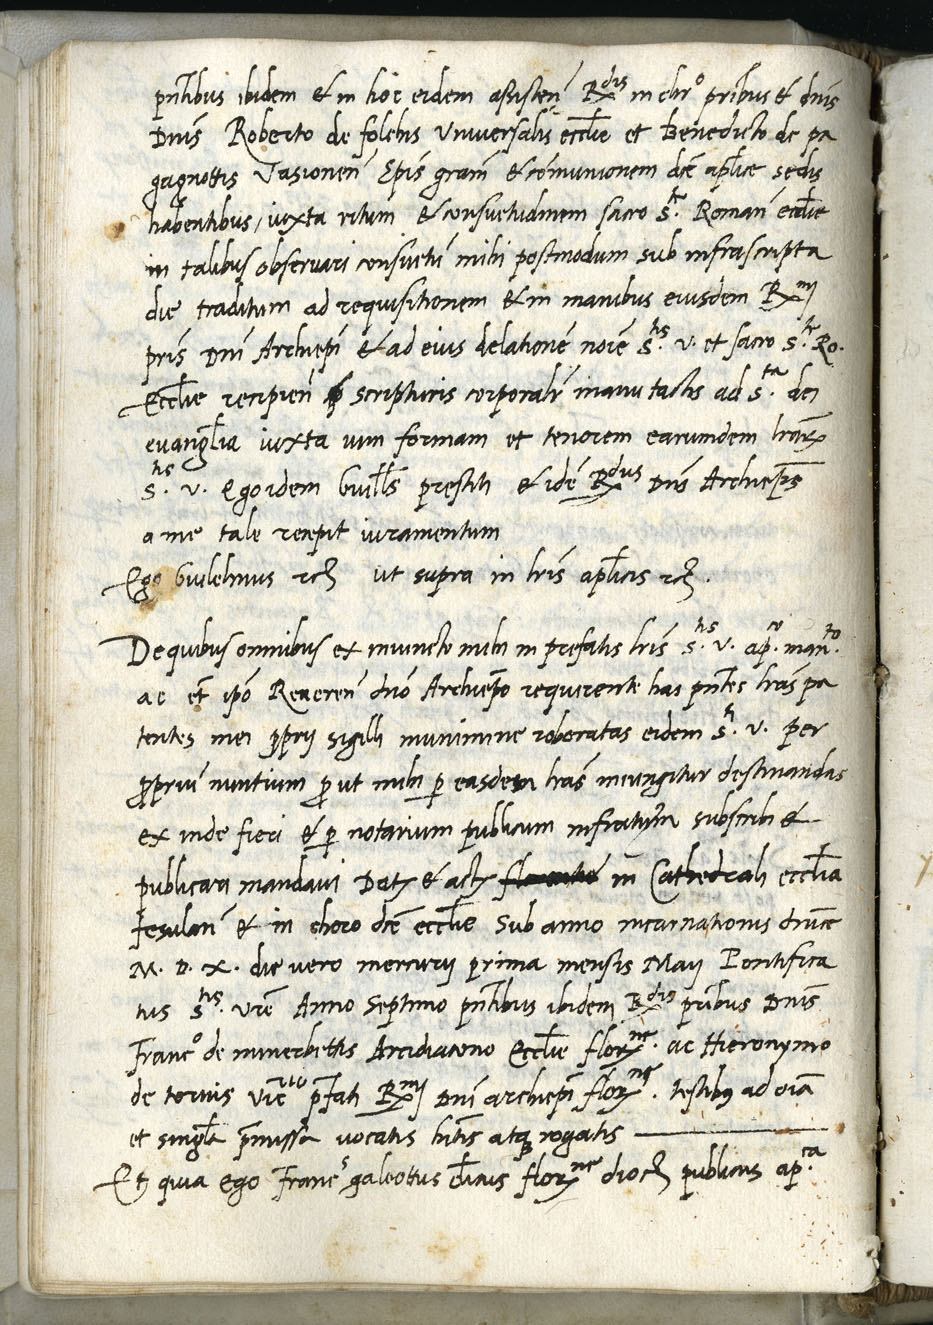 pn̄tibus ibidem & in hoc eidem assisten̄ Rdis in chr̄o pr̄ibus & dn̄is
Dn̄is Roberto de folchis Universalis eccl̄ie et Benedicto de pa
gagnottis Vasionen̄ Ep̄is gram̄ & cōmunionem dc̄e apl̄ice sedis
habentibus, iuxta ritum & consuetudinem sacro S.te Roman̄ eccl̄ie
in talibus observari consuetū mihi postmodum sub infrascripta
die traditum ad requisitionem & in manibus eiusdem R.mi
pris Dn̄i Archiep̄i & ad eius delationē noīe S.tis V. et sacro S.te Ro.
Eccl̄ie recipien̄ scripturis corporalr̄ manu tactis ad S.ta dei
evangl̄ia iuxta vim formam et tenorem earumdem lr̄arꝝ
S.tis V. Ego idem Guill̄s prestiti & idē Rdus Dn̄s Archiep̄s
a me tale recepit iuramentum
Ego Guilelmus rcꝫ ut supra in lr̄is apl̄icis rcꝫ.
De quibus omnibus ex iniuncto mihi in prefatis lr̄is S.tis V. ap.co man.to
ac et̄ ip̄o Reveren̄ dn̄o Archiep̄o requirente has pn̄tes lr̄as pa
tentes mei ꝓprij sigilli munimine roboratas eidem S.ti V. per
ꝓpriū nuntium ꝓut mihi ꝑ easdem lr̄as iniungitur destinandas
ex inde fieri & ꝑ notarium publicum infrascriptum subscribi &
publicari mandavi Datꝫ & actꝫ in Cathedrali eccl̄ia
fesulan̄ & in choro dc̄e eccl̄ie Sub anno incarnationis divine
M. D. X. die vero mercurij prima mensis Maij Pontifica
tus S.tis vr̄e Anno Septimo pn̄tibus ibidem Rdis pr̄ibus Dn̄is
Franc.o de minerbettis Archidiacono Eccl̄ie florne. ac Hieronymo
de tornis prefati R.mi Dn̄i archiep̄i florne. testibꝰ ad oīa
et singl̄a p̄missa vocatis hitis atqꝫ rogatis
Et quia Ego Franc.s galeottus cl̄icus florne diocꝫ publicus ap.ca